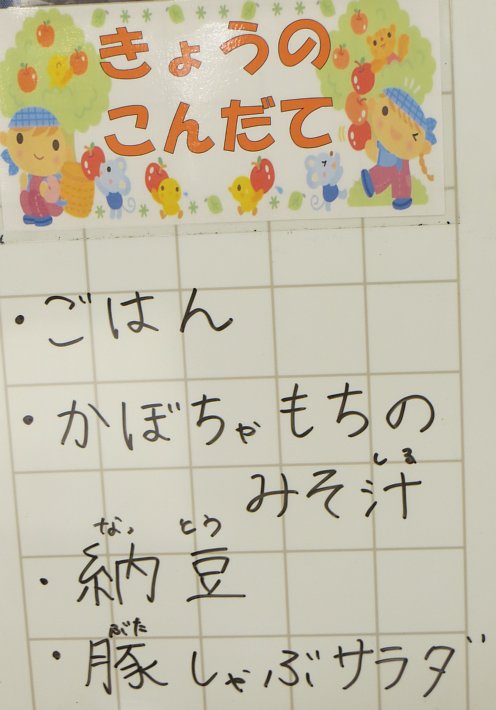 きょうの
こんだて
・ごはん
・かぼちゃもちの
しる
みそ汁
なっ とう
・納豆
ぶた
・豚しゃぶサラダ